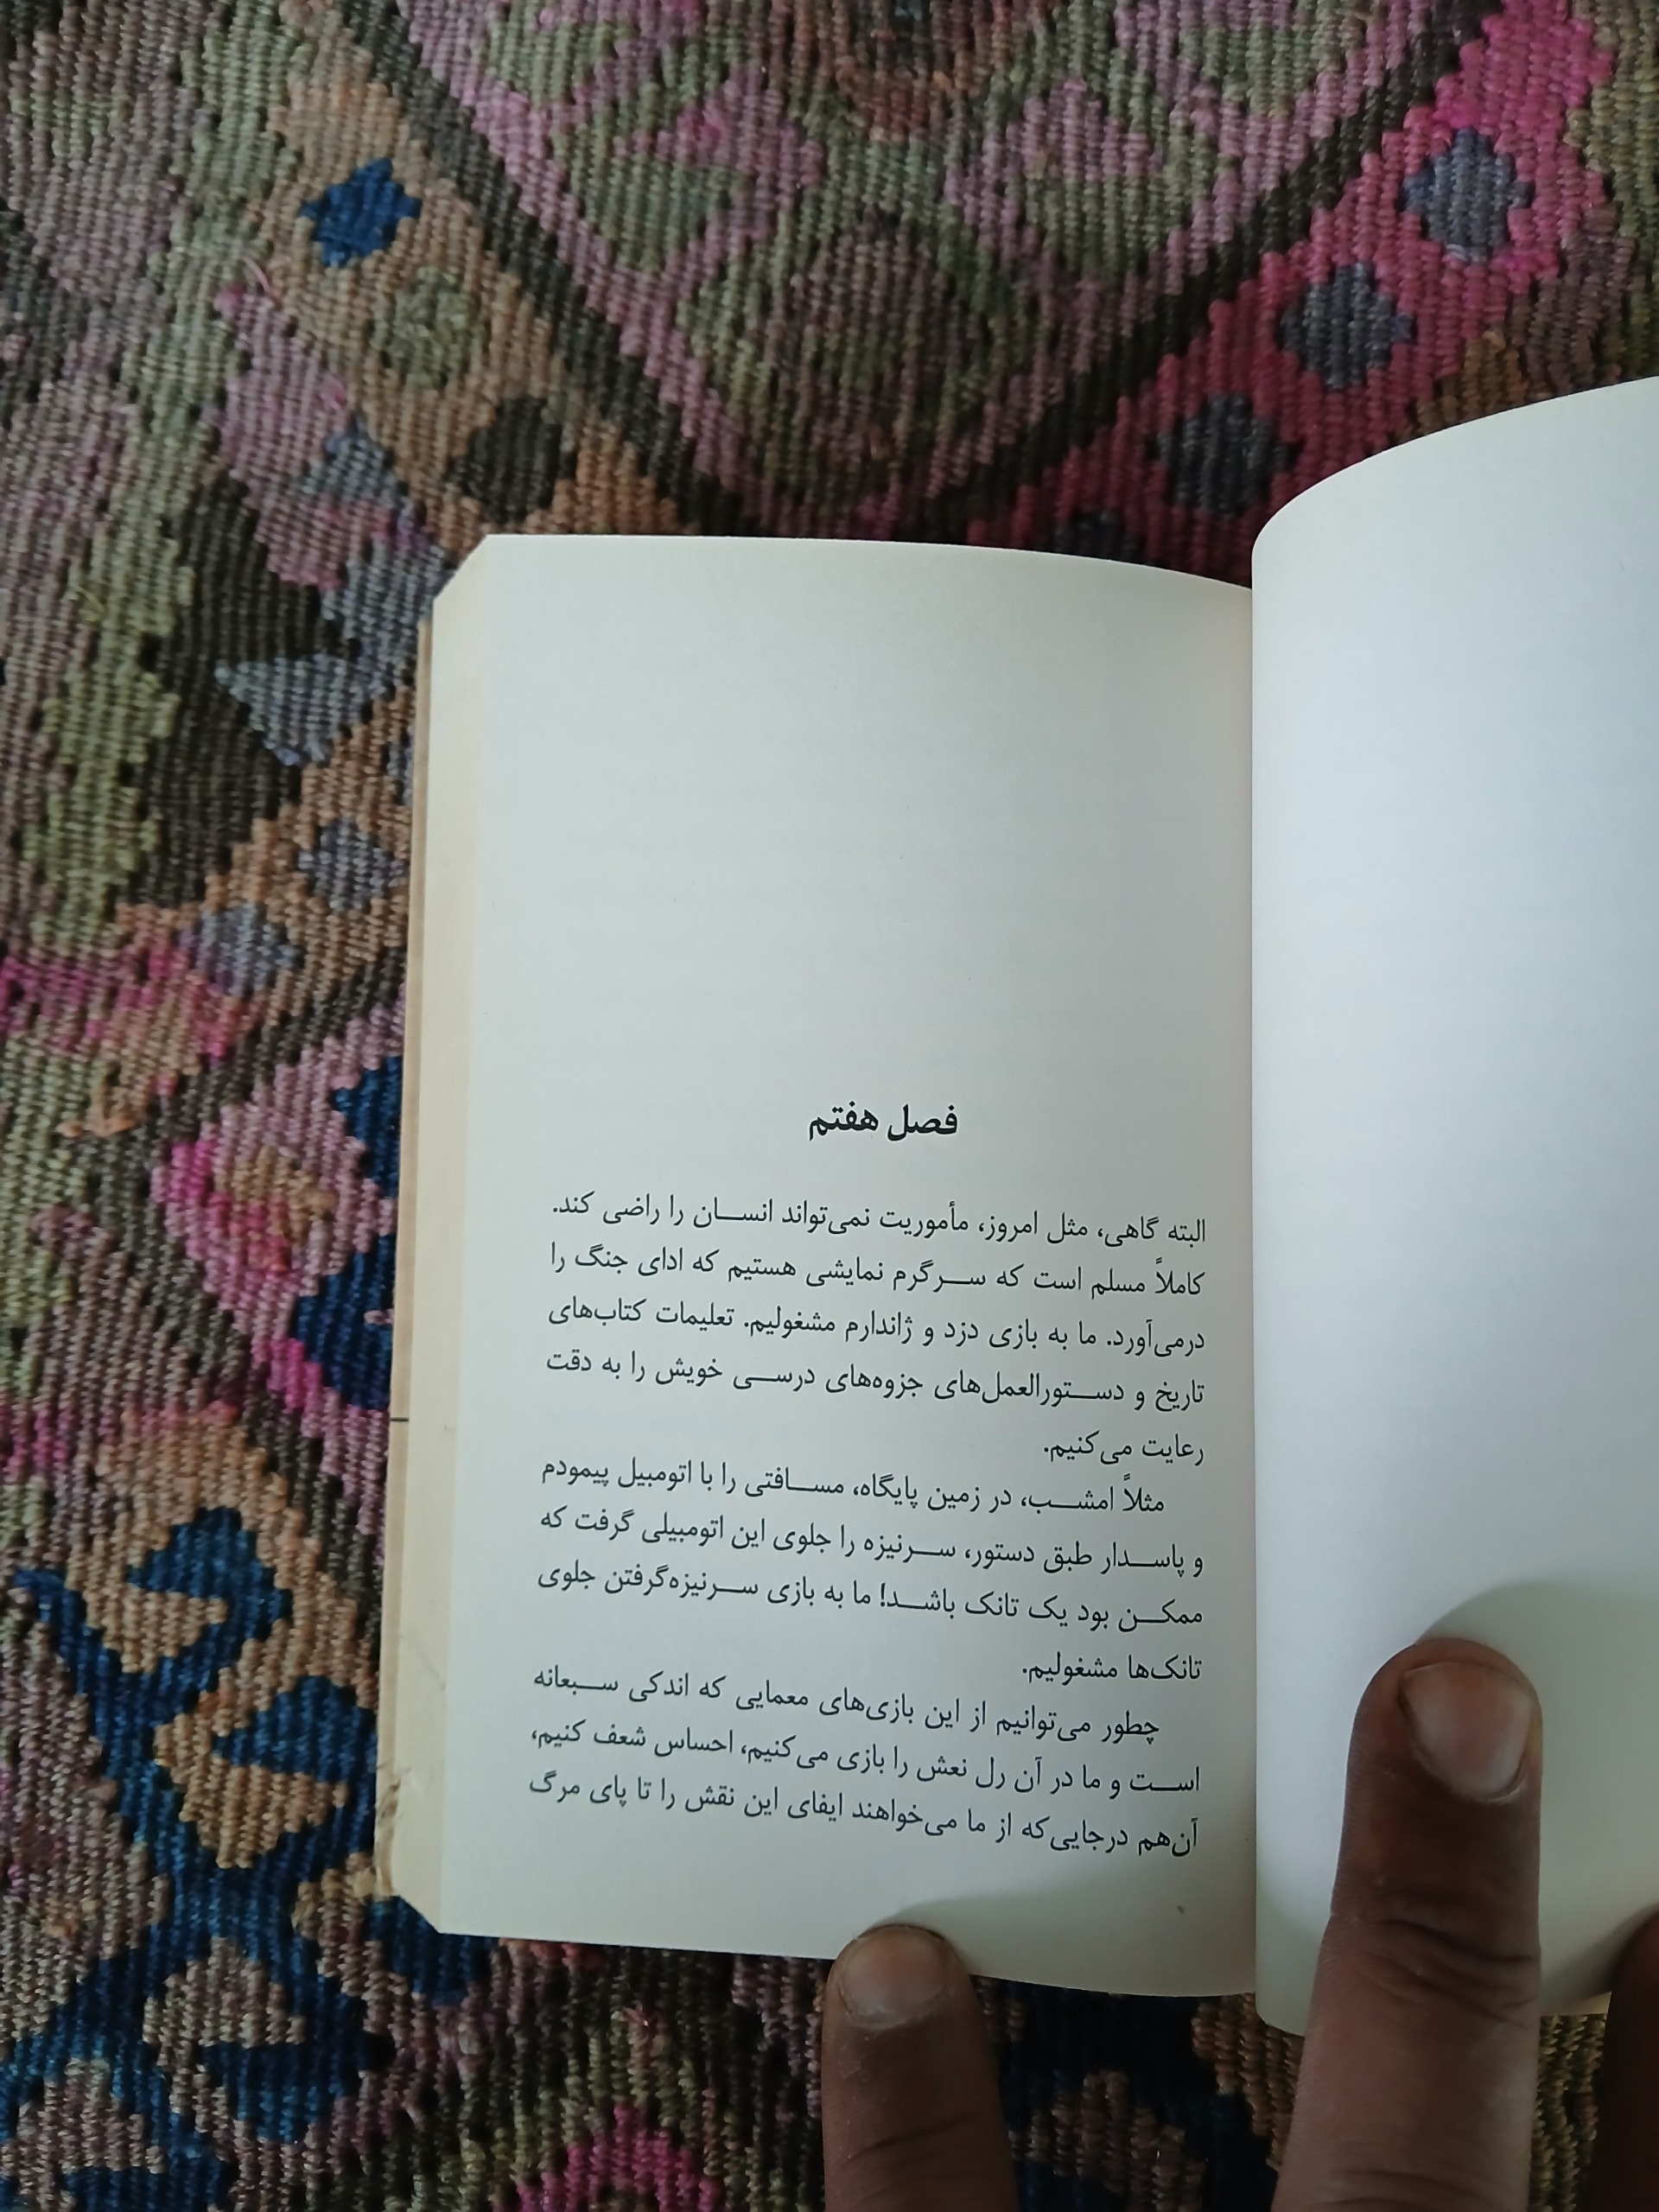 فصل هفتم
البته گاهی، مثل امروز، مأموریت نمی‌تواند انسان را راضی کند.
کاملاً مسلم است که سرگرم نمایشی هستیم که ادای جنگ را
درمی‌آورد. ما به بازی دزد و ژاندارم مشغولیم. تعلیمات کتاب‌های
تاریخ و دستورالعمل‌های جزوه‌های درسی خویش را به دقت
رعایت می‌کنیم.
مثلاً امشب، در زمین پایگاه، مسافتی را با اتومبیل پیمودم
و پاسدار طبق دستور، سرنیزه را جلوی این اتومبیلی گرفت که
ممکن بود یک تانک باشد! ما به بازی سرنیزه‌گرفتن جلوی
تانک‌ها مشغولیم.
چطور می‌توانیم از این بازی‌های معمایی که اندکی سبعانه
است و ما در آن رل نعش را بازی می‌کنیم، احساس شعف کنیم،
آن‌هم درجایی‌که از ما می‌خواهند ایفای این نقش را تا پای مرگ